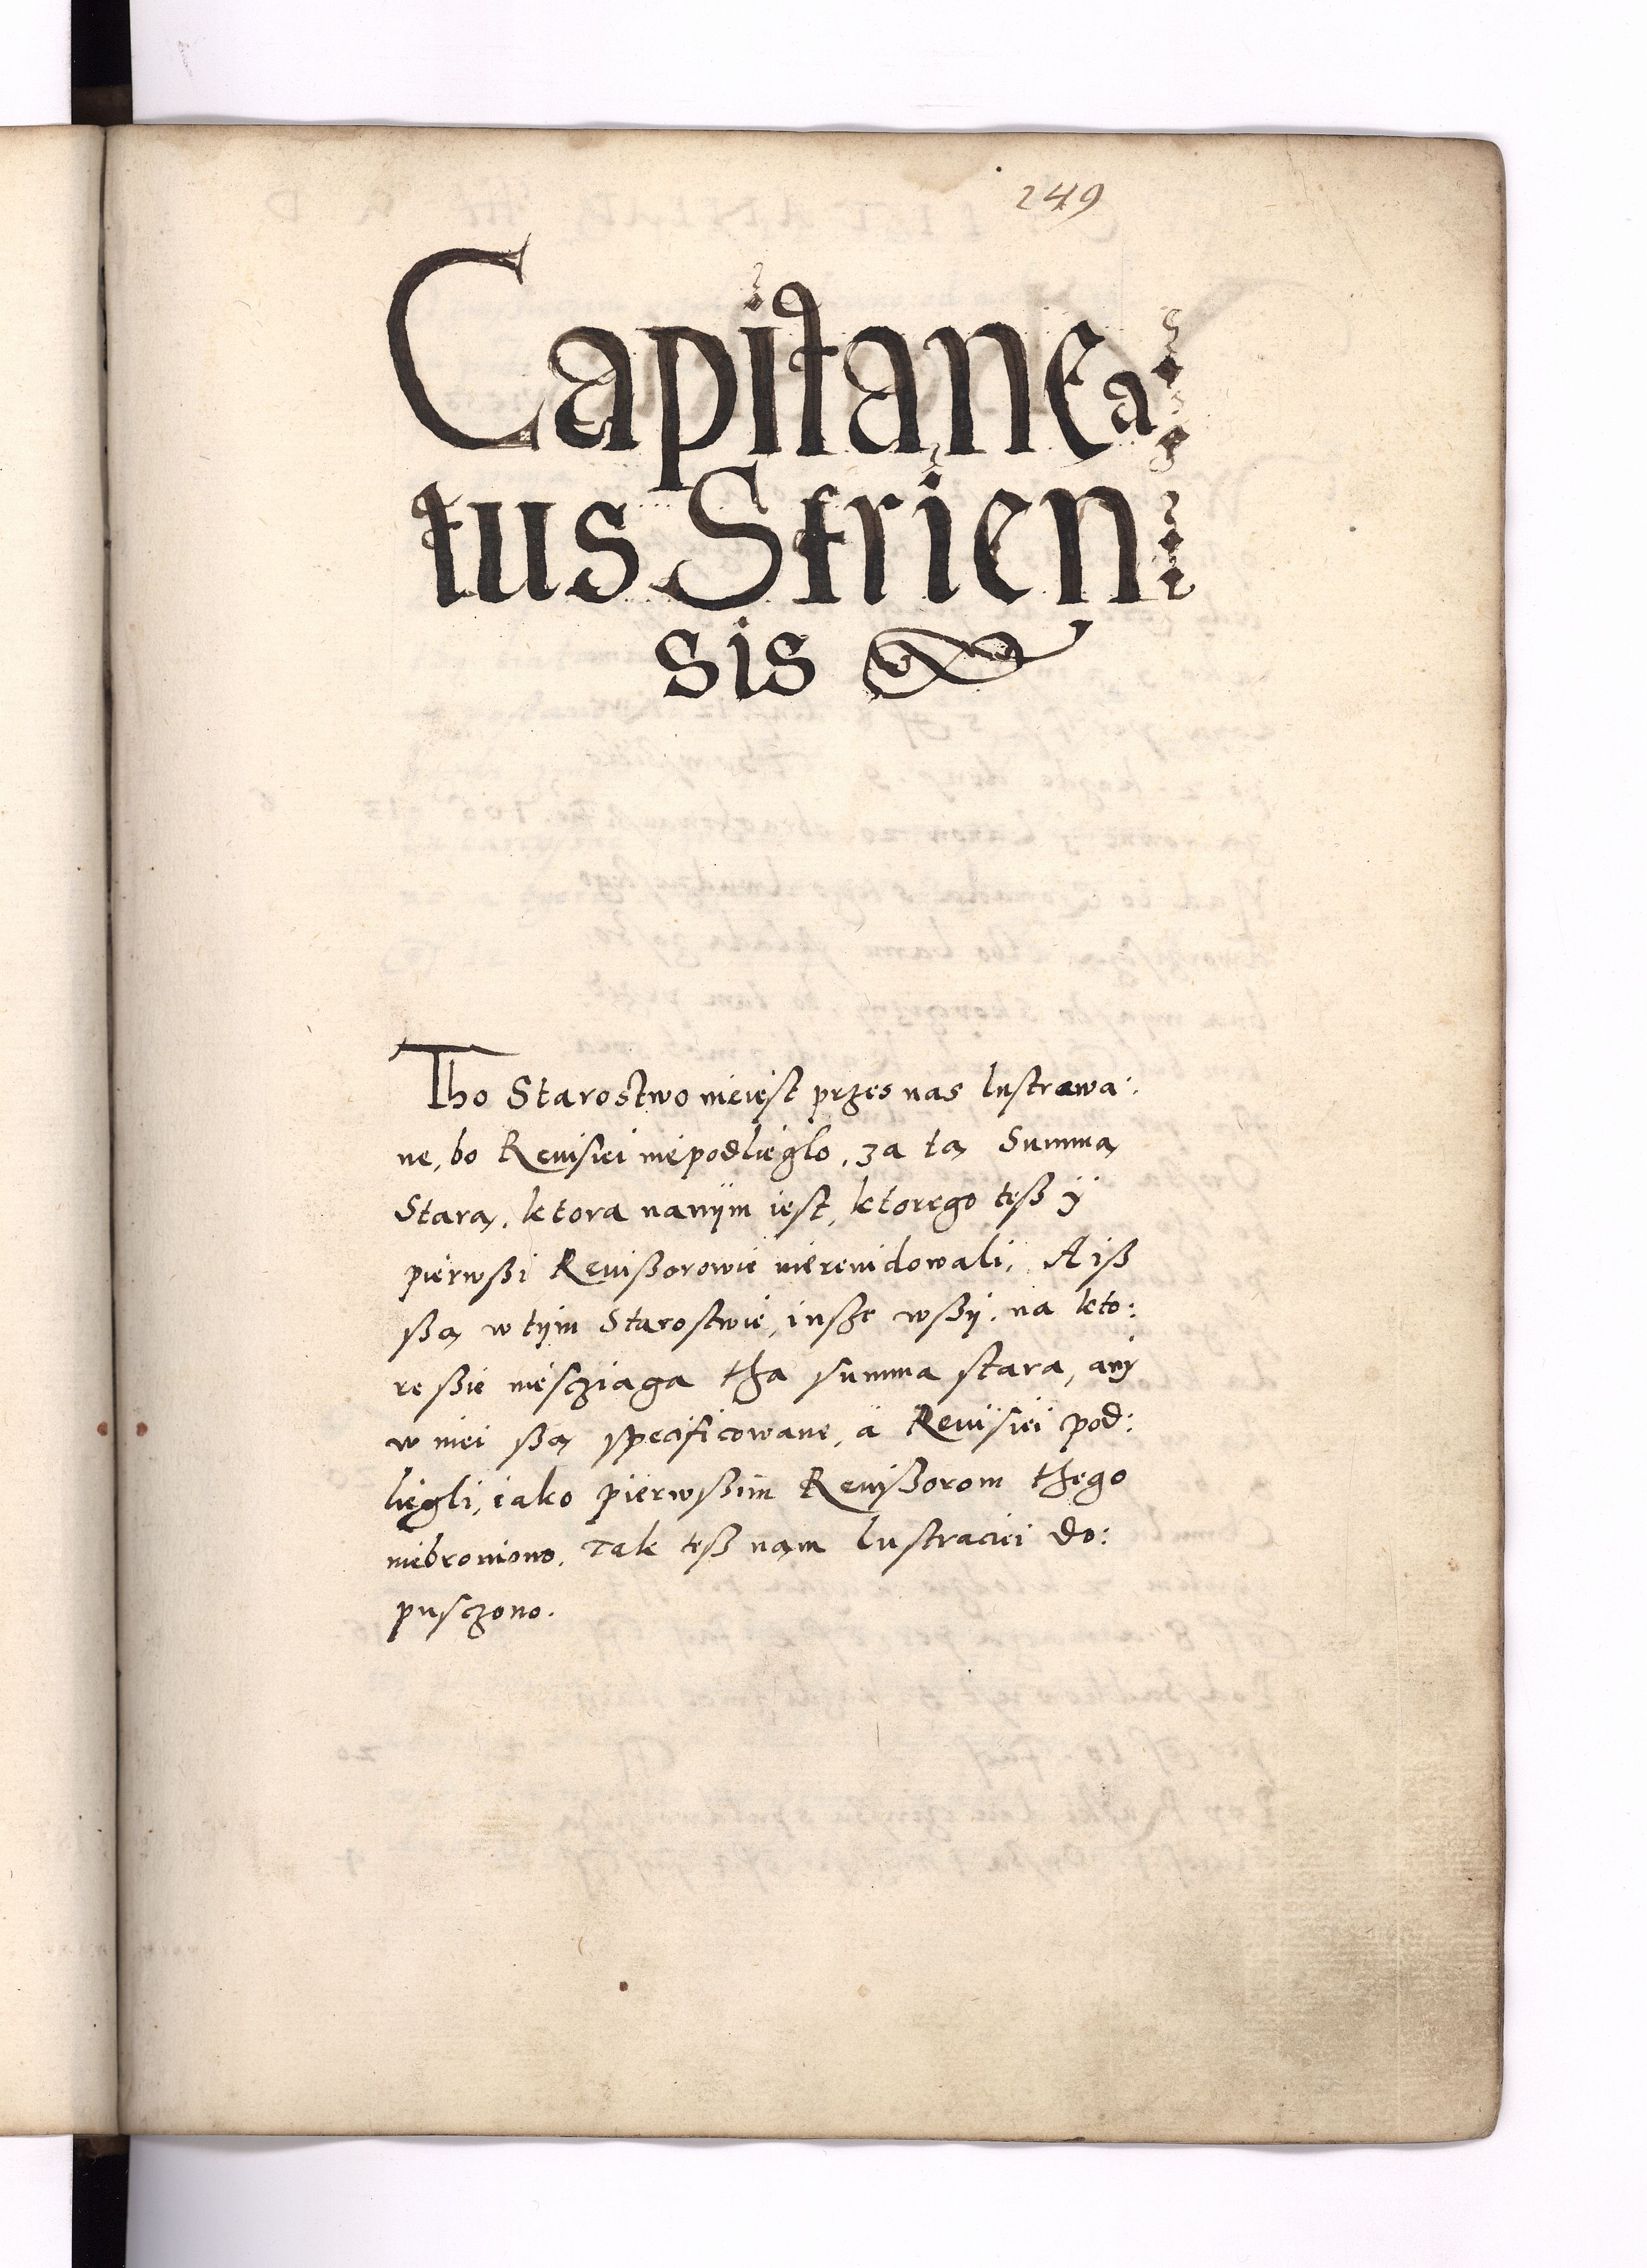 249
Capitanea
tus Strien
sis
Tho Starostwo nieiest przes nas lustrowa:
ne, bo Reuisiei niepodliegło, za tą Summą
Starą, ktora nanÿm iest, ktorego tesß ÿ
pierwßi Reuißorowie niereuidowali, A iß
ßą w tÿm Starostwie, insße wßÿ, na kto:
re ßie niesczĩaga tha summa stara, any
w niei ßą specificowane, a Reuisiei pod:
liegli, iako pierwßim Reuißorom thego
niebroniono, Tak teß nam lustraciei do:
pusczono.